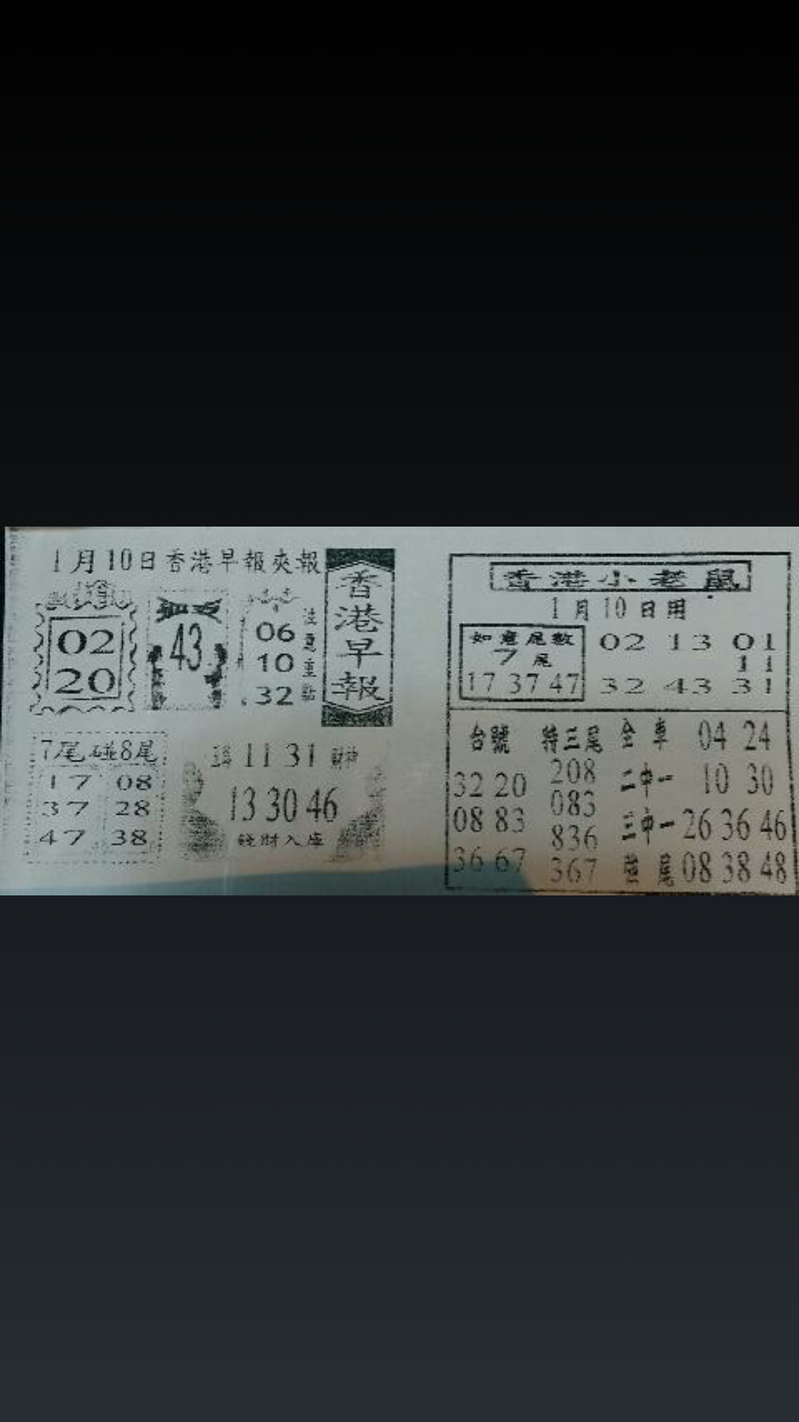 1月10日香港早報夾報
香港早報
02
20
43
06
10
32
注意重點
7尾碰8尾
17 08
37 28
47 38
11 31 財神
13 30 46
錢財入庫
香港小老鼠
1月10日用
如意尾數
7尾
17 37 47
02 13 01
11
32 43 31
台號 特三尾 全車 04 24
32 20 208 二中一 10 30
08 83 083 三中一 26 36 46
836
36 67 367 尾 08 38 48